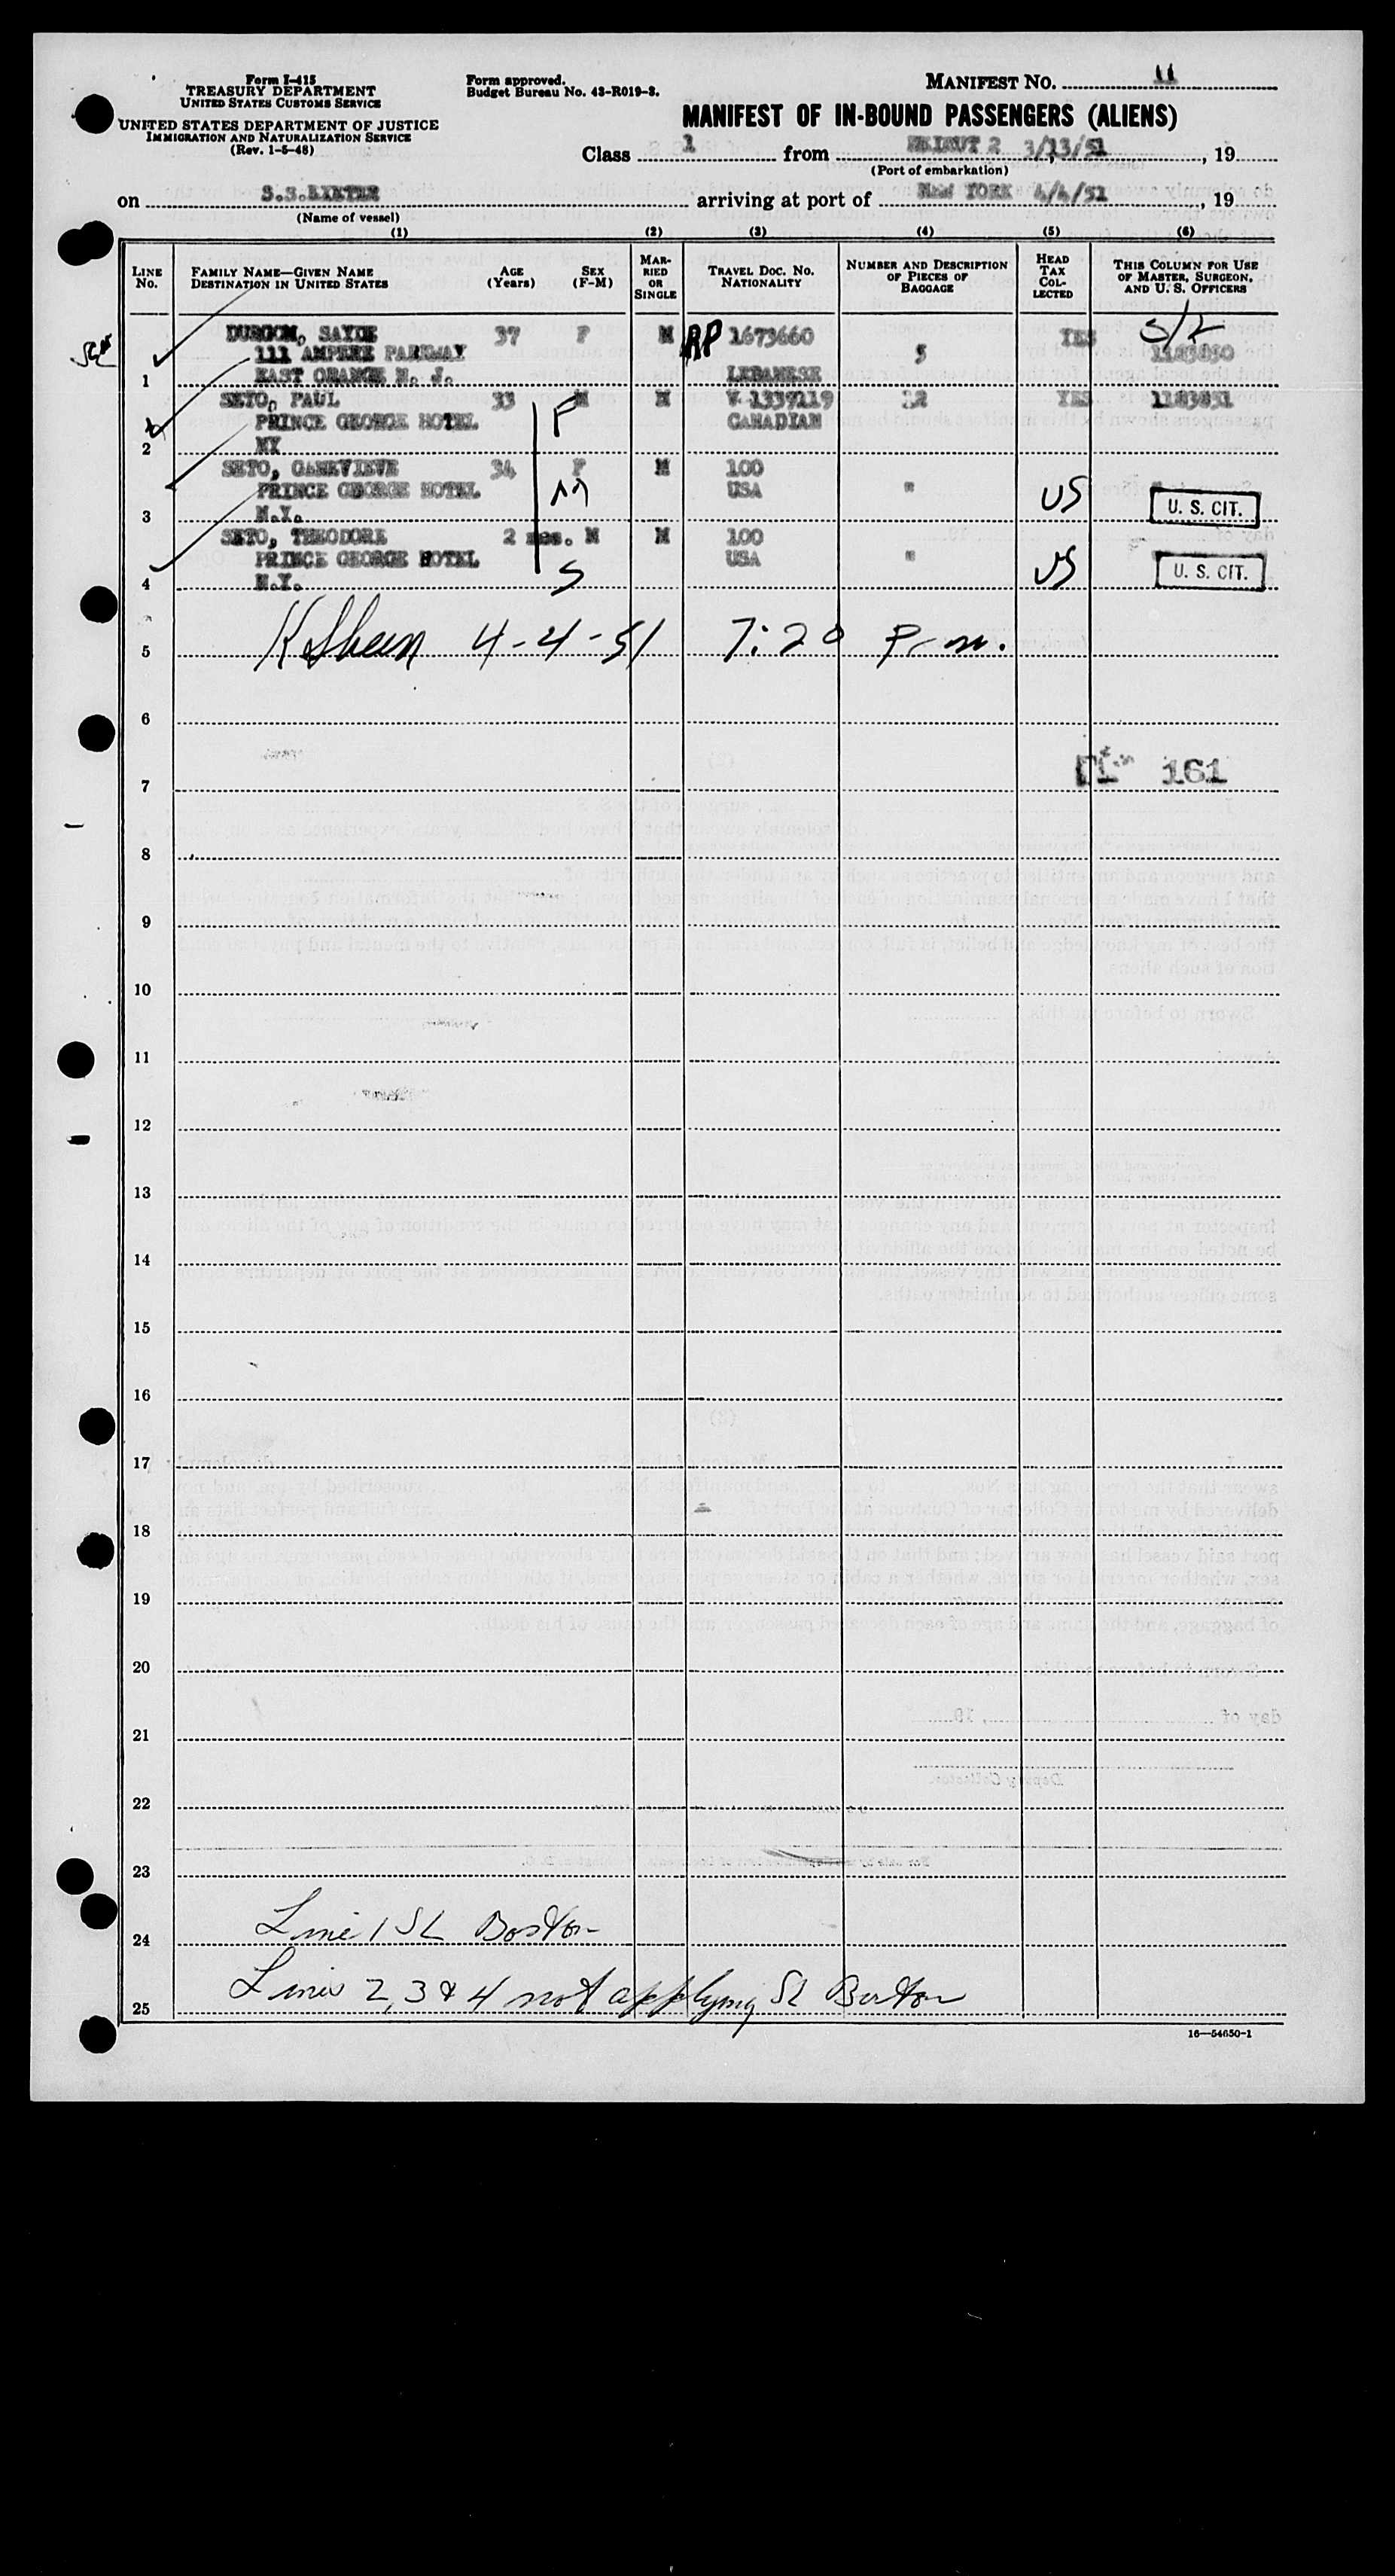 Form I-415
TREASURY DEPARTMENT
UNITED STATES CUSTOMS SERVICE
UNITED STATES DEPARTMENT OF JUSTICE
IMMIGRATION AND NATURALIZATION SERVICE
(Rev. 1-5-48)
Form approved.
Budget Bureau No. 43-R019-3.
MANIFEST NO. 11
MANIFEST OF IN-BOUND PASSENGERS (ALIENS)
Class 1 from BEIRUT 2 3/13/51, 19
(Port of embarkation)
on S.S.EXETER arriving at port of NEW YORK 4/4/51, 19
(Name of vessel)
(1) (2) (3) (4) (5) (6)
LINE No. FAMILY NAME—GIVEN NAME DESTINATION IN UNITED STATES AGE (Years) SEX (F-M) MARRIED OR SINGLE TRAVEL DOC. NO. NATIONALITY NUMBER AND DESCRIPTION OF PIECES OF BAGGAGE HEAD TAX COLLECTED THIS COLUMN FOR USE OF MASTER, SURGEON, AND U. S. OFFICERS
DURGOM, SAYDE 37 F M RP 1673660 YES 5/2
111 AMPERE PARKWAY 5 1183830
1 EAST ORANGE N. J. LEBANESE
SETO, PAUL 33 M M V 1339119 12 YES 1183831
PRINCE GEORGE HOTEL F CANADIAN
2 NY
SETO, GANEVIEVE 34 F M 100
PRINCE GEORGE HOTEL M USA " US U. S. CIT.
3 N.Y.
SETO, THEODORE 2 mos. M M 100
PRINCE GEORGE HOTEL USA " US U. S. CIT.
4 N.Y. S
5 4-4-51 7:20 P.m.
6
7 161
8
9
10
11
12
13
14
15
16
17
18
19
20
21
22
23
24 Line 1 SL Boston
25 Lines 2, 3 & 4 not applying SL Boston
16—54650-1